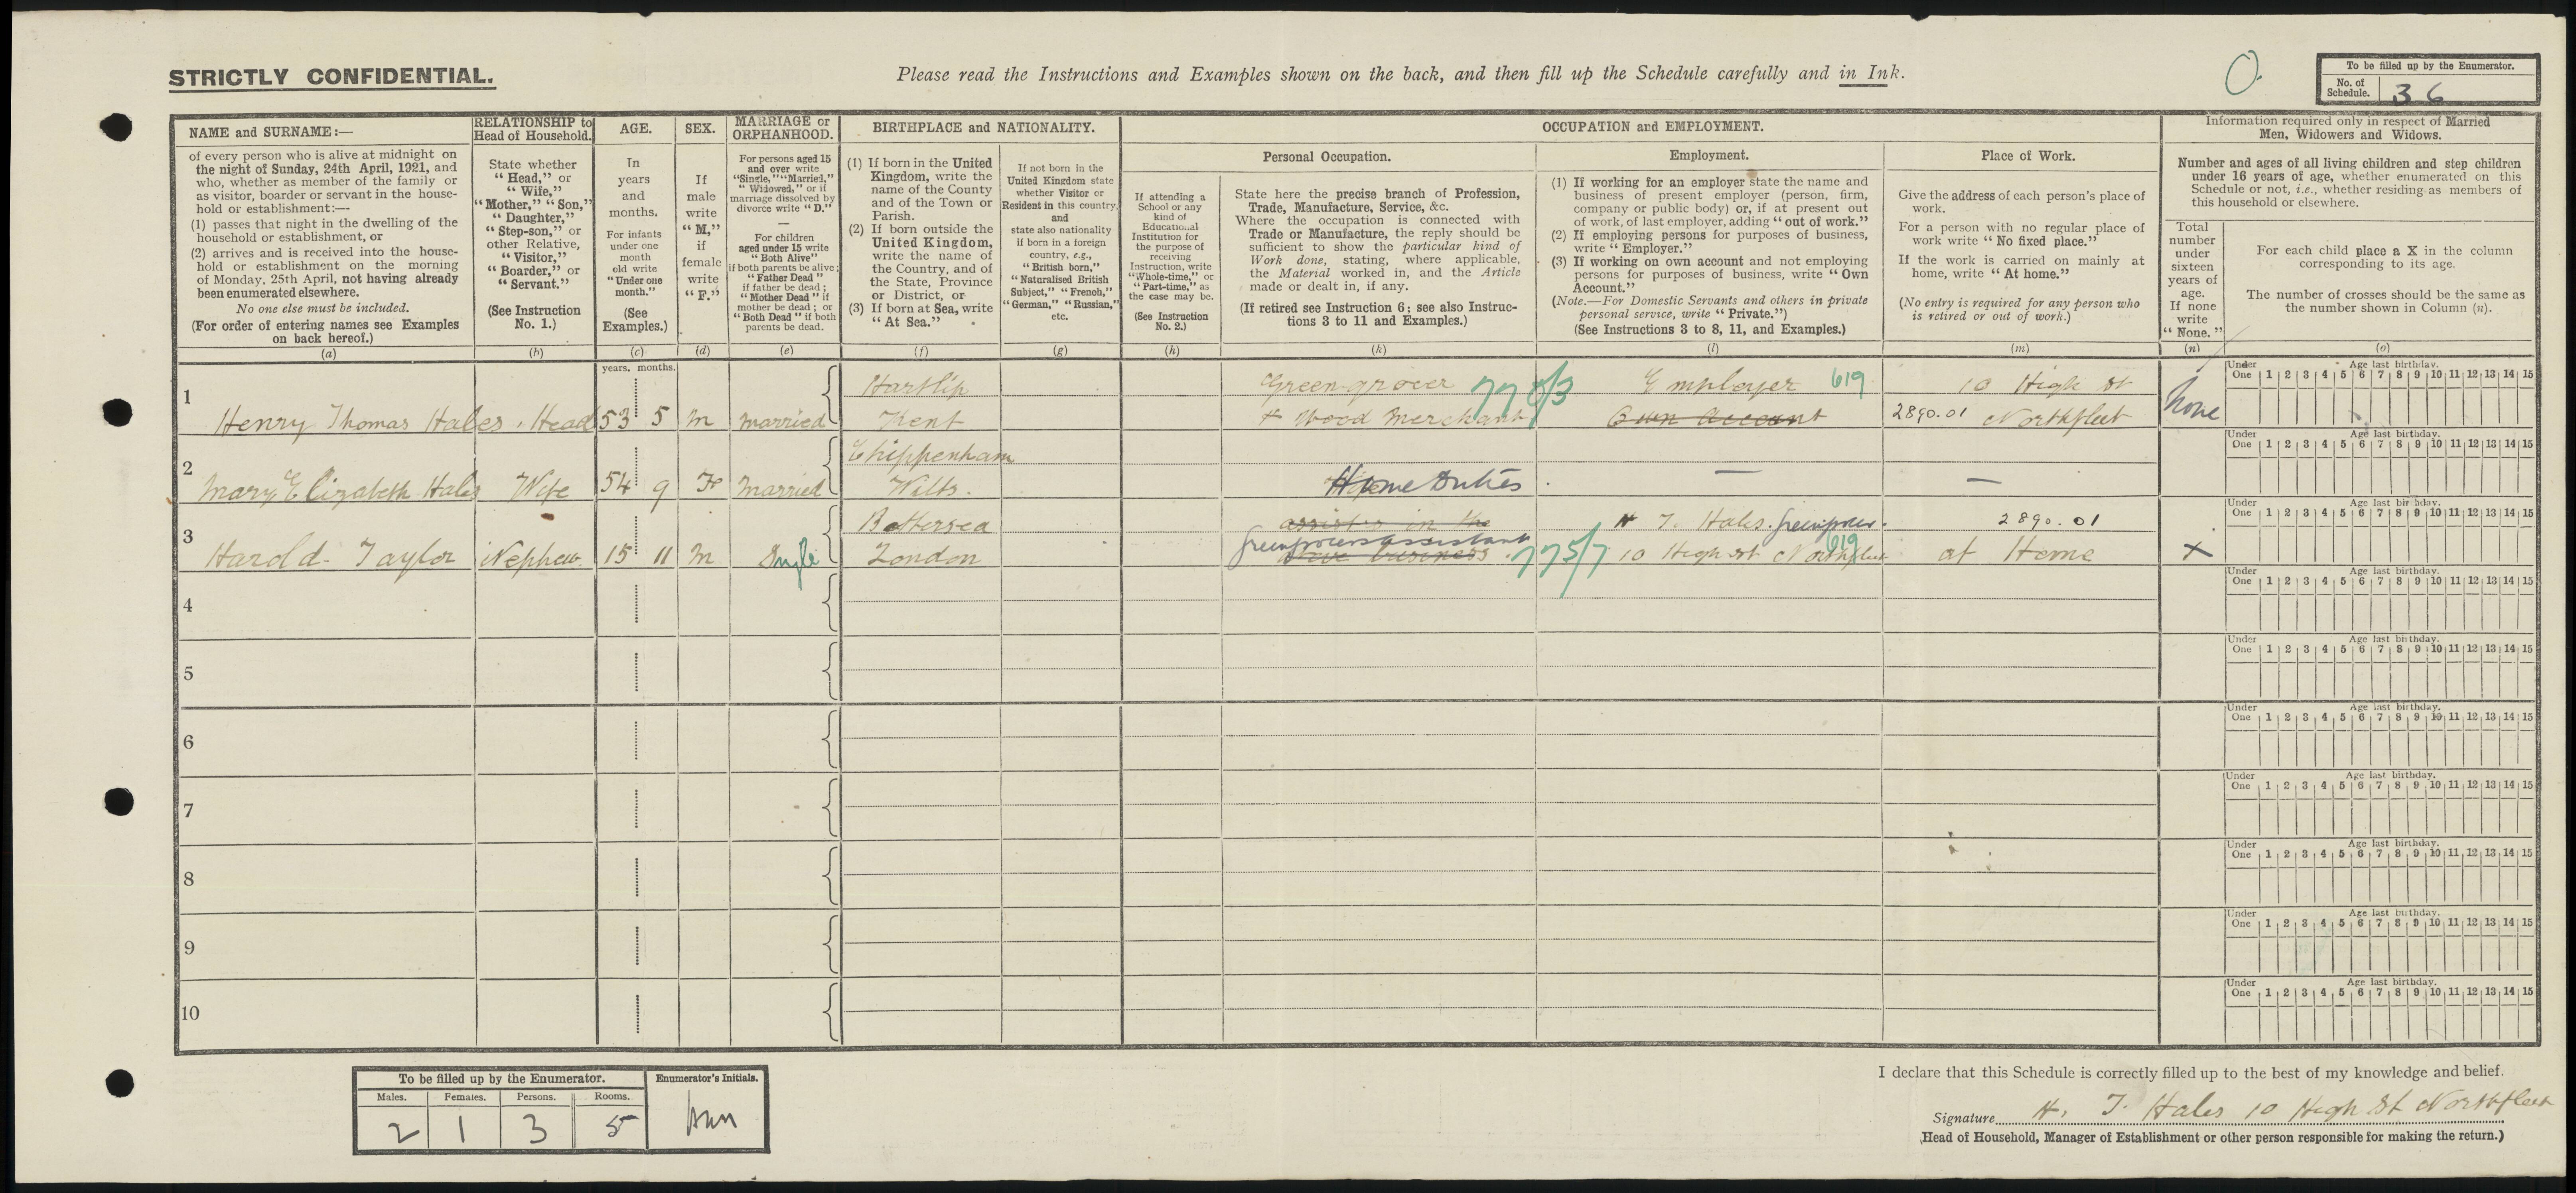 STRICTLY CONFIDENTIAL.
Please read the Instructions and Examples shown on the back, and then fill up the Schedule carefully and in Ink.
To be filled up by the Enumerator.
No. of Schedule. 36
NAME and SURNAME:—
of every person who is alive at midnight on
the night of Sunday, 24th April, 1921, and
who, whether as member of the family or
as visitor, boarder or servant in the house-
hold or establishment:—
(1) passes that night in the dwelling of the
household or establishment, or
(2) arrives and is received into the house-
hold or establishment on the morning
of Monday, 25th April, not having already
been enumerated elsewhere.
No one else must be included.
(For order of entering names see Examples
on back hereof.)
(a)
RELATIONSHIP to
Head of Household.
State whether
"Head," or
"Wife,"
"Mother," "Son,"
"Daughter,"
"Step-son," or
other Relative,
"Visitor,"
"Boarder," or
"Servant."
(See Instruction
No. 1.)
(b)
AGE.
In
years
and
months.
For infants
under one
month
old write
"Under one
month."
(See
Examples.)
(c)
SEX.
If
male
write
"M,"
if
female
write
"F."
(d)
MARRIAGE or
ORPHANHOOD.
For persons aged 15
and over write
"Single," "Married,"
"Widowed," or if
marriage dissolved by
divorce write "D."
—
For children
aged under 15 write
"Both Alive"
if both parents be alive;
"Father Dead"
if father be dead;
"Mother Dead" if
mother be dead; or
"Both Dead" if both
parents be dead.
(e)
BIRTHPLACE and NATIONALITY.
(1) If born in the United
Kingdom, write the
name of the County
and of the Town or
Parish.
(2) If born outside the
United Kingdom,
write the name of
the Country, and of
the State, Province
or District, or
(3) If born at Sea, write
"At Sea."
(f)
If not born in the
United Kingdom state
whether Visitor or
Resident in this country,
and
state also nationality
if born in a foreign
country, e.g.,
"British born,"
"Naturalised British
Subject," "French,"
"German," "Russian,"
etc.
(g)
OCCUPATION and EMPLOYMENT.
Personal Occupation.
If attending a
School or any
kind of
Educational
Institution for
the purpose of
receiving
Instruction, write
"Whole-time," or
"Part-time," as
the case may be.
(See Instruction
No. 2.)
(h)
State here the precise branch of Profession,
Trade, Manufacture, Service, &c.
Where the occupation is connected with
Trade or Manufacture, the reply should be
sufficient to show the particular kind of
Work done, stating, where applicable,
the Material worked in, and the Article
made or dealt in, if any.
(If retired see Instruction 6; see also Instruc-
tions 3 to 11 and Examples.)
(k)
Employment.
(1) If working for an employer state the name and
business of present employer (person, firm,
company or public body) or, if at present out
of work, of last employer, adding "out of work."
(2) If employing persons for purposes of business,
write "Employer."
(3) If working on own account and not employing
persons for purposes of business, write "Own
Account."
(Note.—For Domestic Servants and others in private
personal service, write "Private.")
(See Instructions 3 to 8, 11, and Examples.)
(l)
Place of Work.
Give the address of each person's place of
work.
For a person with no regular place of
work write "No fixed place."
If the work is carried on mainly at
home, write "At home."
(No entry is required for any person who
is retired or out of work.)
(m)
Information required only in respect of Married
Men, Widowers and Widows.
Number and ages of all living children and step children
under 16 years of age, whether enumerated on this
Schedule or not, i.e., whether residing as members of
this household or elsewhere.
Total
number
under
sixteen
years of
age.
If none
write
"None."
(n)
For each child place a X in the column
corresponding to its age.
The number of crosses should be the same as
the number shown in Column (n).
(o)
years. months.
Under One Age last birthday. 1 2 3 4 5 6 7 8 9 10 11 12 13 14 15
1 Henry Thomas Hales. Head 53 5 M Married Hartlip Kent Greengrocer + Wood Merchant 770/3 Employer 619 Own Account 10 High St 2890.01 Northfleet None
Under One Age last birthday. 1 2 3 4 5 6 7 8 9 10 11 12 13 14 15
2 Mary Elizabeth Hales Wife 54 9 F Married Chippenham Wilts. Home Duties — —
Under One Age last birthday. 1 2 3 4 5 6 7 8 9 10 11 12 13 14 15
3 Harold Taylor Nephew. 15 11 M Single Battersea London assists in the business greengrocers assistant 775/7 H T. Hales. Greengrocer. 10 High St Northfleet 619 2890.01 at Home X
Under One Age last birthday. 1 2 3 4 5 6 7 8 9 10 11 12 13 14 15
4
Under One Age last birthday. 1 2 3 4 5 6 7 8 9 10 11 12 13 14 15
5
Under One Age last birthday. 1 2 3 4 5 6 7 8 9 10 11 12 13 14 15
6
Under One Age last birthday. 1 2 3 4 5 6 7 8 9 10 11 12 13 14 15
7
Under One Age last birthday. 1 2 3 4 5 6 7 8 9 10 11 12 13 14 15
8
Under One Age last birthday. 1 2 3 4 5 6 7 8 9 10 11 12 13 14 15
9
Under One Age last birthday. 1 2 3 4 5 6 7 8 9 10 11 12 13 14 15
10
To be filled up by the Enumerator.
Males. Females. Persons. Rooms.
2 1 3 5
Enumerator's Initials.
I declare that this Schedule is correctly filled up to the best of my knowledge and belief.
Signature H. T. Hales 10 High St Northfleet
(Head of Household, Manager of Establishment or other person responsible for making the return.)